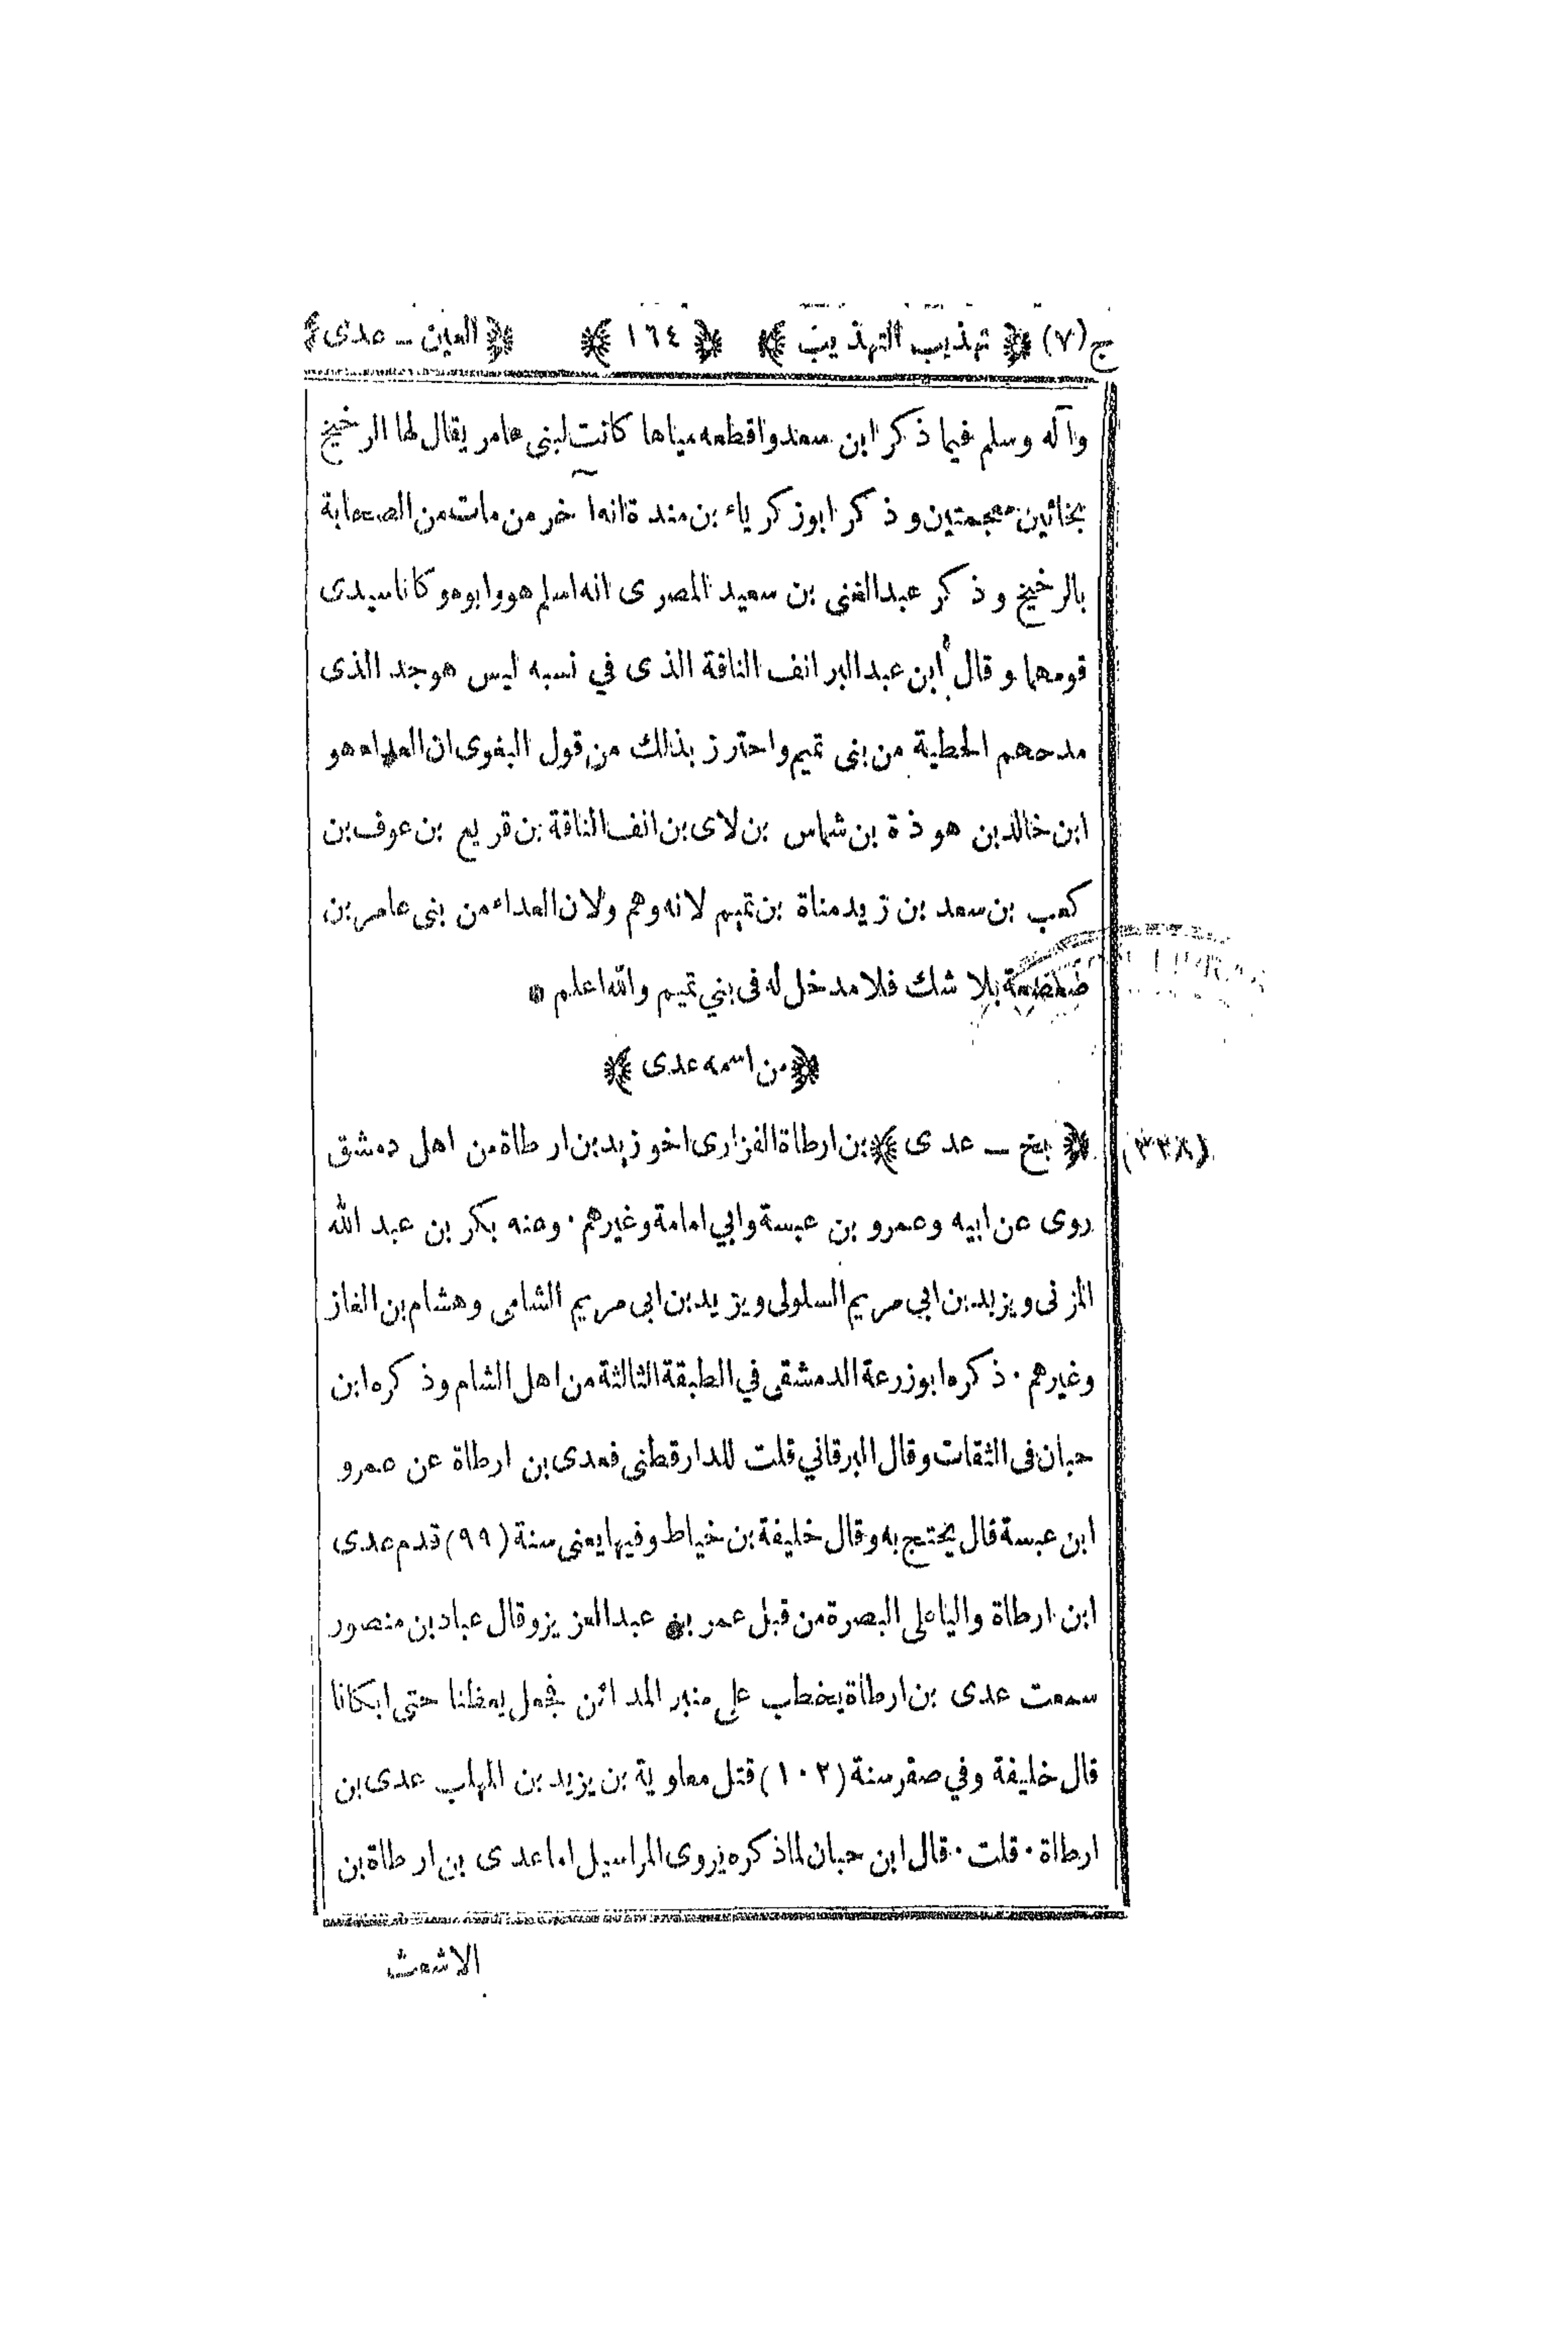 ج(٧) ﴿ تهذيب التهذيب ﴾ ﴿ ١٦٤ ﴾ ﴿ العين ــ عدى ﴾
وآله وسلم فيما ذكر ابن سعد واقطعه مياها كانت لبنى عامر يقال لها الرخيخ
بخائين معجمتين وذكر ابو زكرياء بن مندة انه آخر من مات من الصحابة
بالرخيخ وذكر عبد الغنى بن سعيد المصرى انه اسلم هو وابوه وكانا سيدى
قومهما وقال ابن عبد البر انف الناقة الذى في نسبه ليس هو جد الذى
مدحهم الحطية من بنى تميم واحترز بذالك من قول البغوى ان العداء هو
ابن خالد بن هوذة بن شماس بن لاى بن انف الناقة بن قريع بن عوف بن
كعب بن سعد بن زيد مناة بن تميم لانه وهم ولان العداء من بنى عامر بن
صعصعة بلا شك فلا مدخل له فى بني تميم والله اعلم *
﴿ من اسمه عدى ﴾
(٣٣٨) ﴿ بخ ــ عدى ﴾ بن ارطاة الفزارى اخو زيد بن ارطاة من اهل دمشق
روى عن ابيه وعمرو بن عبسة وابي امامة وغيرهم · وعنه بكر بن عبد الله
المزنى ويزيد بن ابي مريم السلولى ويزيد بن ابى مريم الشامى وهشام بن الغاز
وغيرهم · ذكره ابو زرعة الدمشقى في الطبقة الثالثة من اهل الشام وذكره ابن
حبان فى الثقات وقال البرقاني قلت للدارقطنى فعدى بن ارطاة عن عمرو
ابن عبسة قال يحتج به وقال خليفة بن خياط وفيها يعنى سنة (٩٩) قدم عدى
ابن ارطاة واليا على البصرة من قبل عمر بن عبد العزيز وقال عباد بن منصور
سمعت عدى بن ارطاة يخطب على منبر المدائن فجعل يعظنا حتى ابكانا
قال خليفة وفي صفر سنة (١٠٢) قتل معاوية بن يزيد بن المهلب عدى بن
ارطاة · قلت · قال ابن حبان لما ذكره يروى المراسيل اما عدى بن ارطاة بن
الاشعث